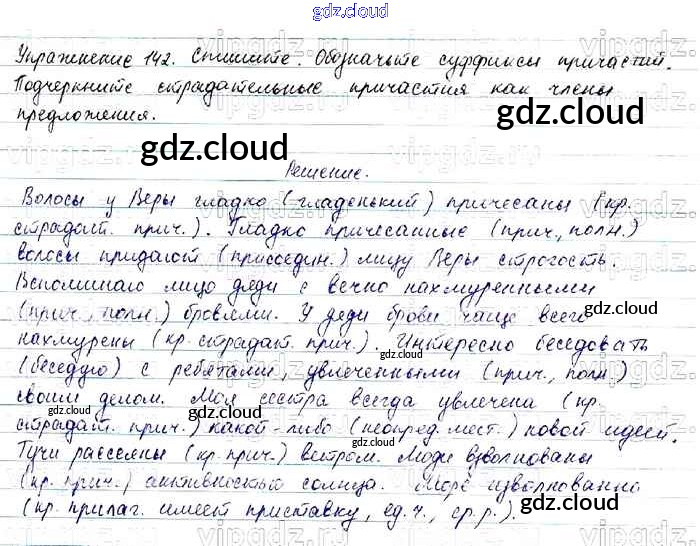 gdz.cloud
Упражнение 142. Спишите. Обозначьте суффиксы причастий.
Подчеркните страдательные причастия как члены
предложения.
gdz.cloud gdz.cloud
Решение.
Волосы у Веры гладко (гладенький) причесаны (кр.
страдат. прич.). Гладко причесанные (прич., полн.)
волосы придают (присоедин.) лицу Веры строгость.
Вспоминаю лицо дяди с вечно нахмуренными
(прич., полн.) бровями. У дяди брови чаще всего
нахмурены (кр. страдат. прич.). Интересно беседовать
(беседую) с ребятами, увлеченными (прич., полн.)
своим делом. Моя сестра всегда увлечена (кр.
страдат. прич.) какой-либо (неопред. мест.) новой идеей.
Тучи рассеяны (кр. прич.) ветром. Люди взволнованы
(кр. прич.) активностью солнца. Море взволнованно
(кр. прилаг. имеет приставку, ед. ч., ср. р.).
gdz.cloud